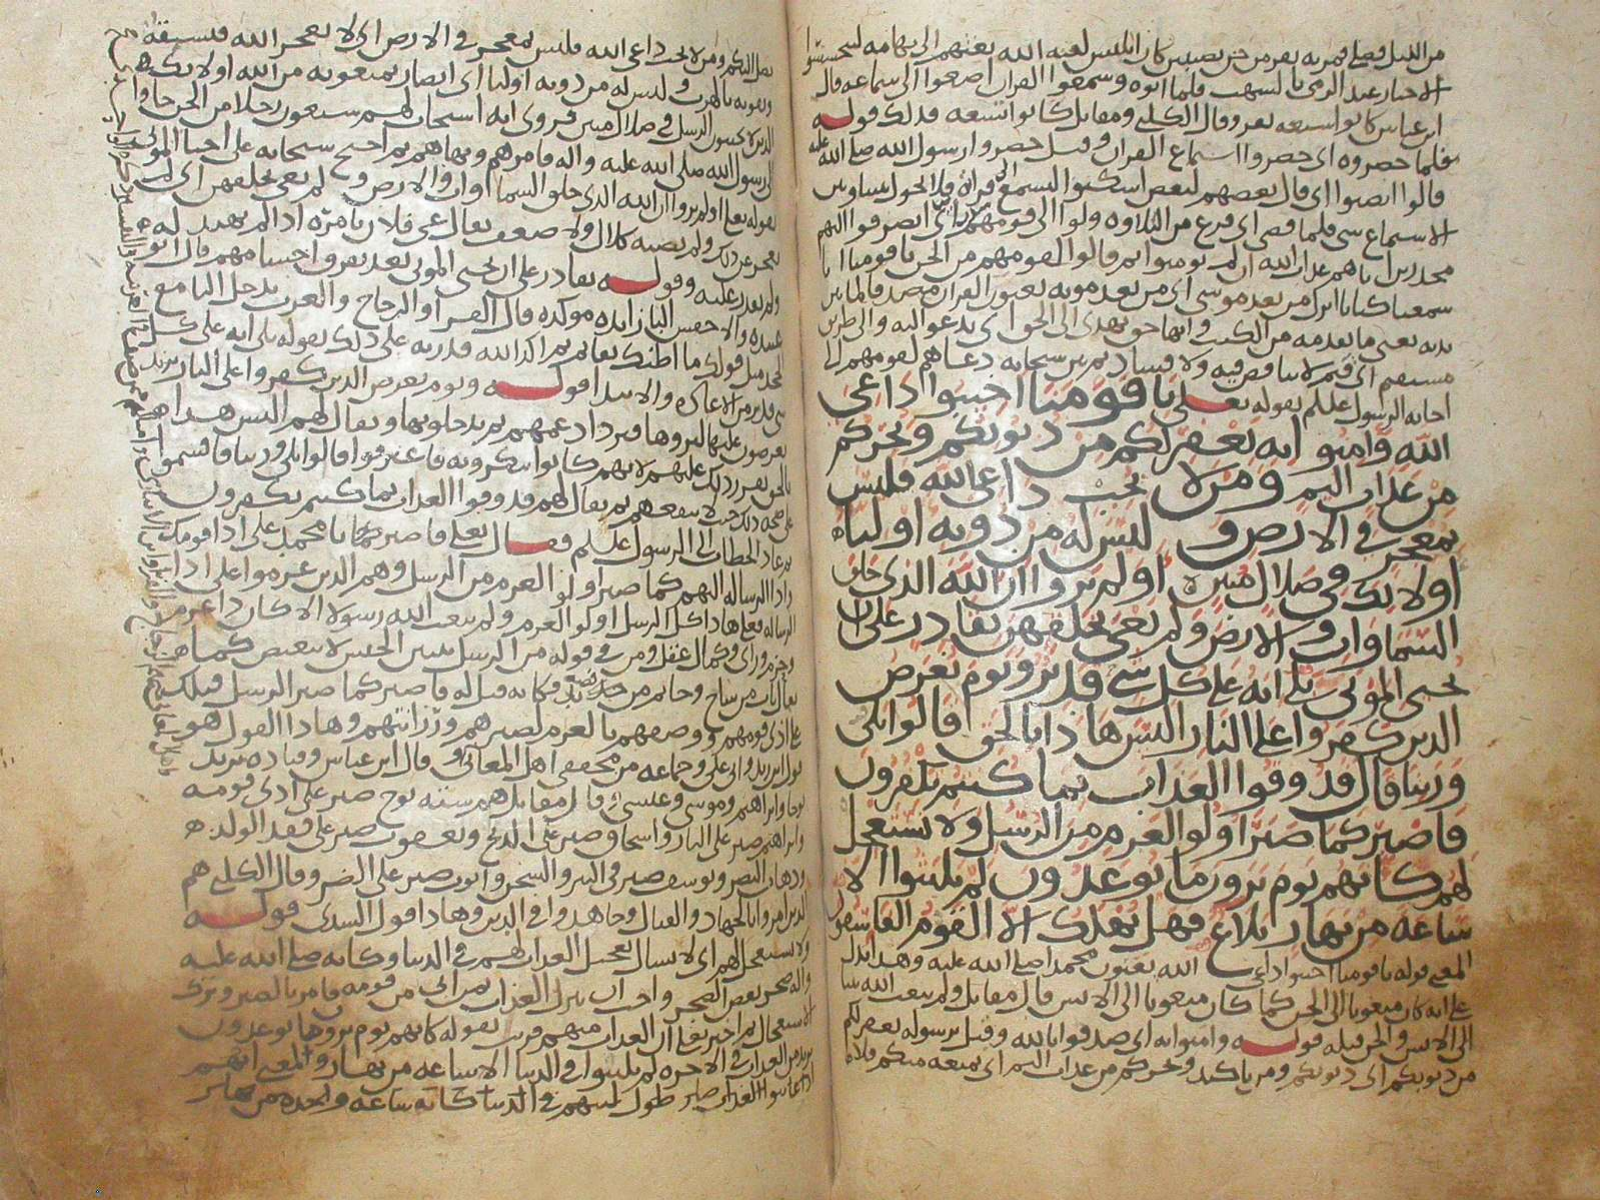 من الليل فصلى فمر به نفر من جن نصيبين كان ابليس لعنه الله بعثهم الى تهامه
الاخبار عند الرمي بالشهب فلما اتوه وسمعوا القران اصغوا الى سماعه قال
ابن عباس كانوا سبعه نفر وقال الكلبي ومقاتل كانوا تسعه فذلك قوله
فلما حضروه اى حضروا استماع القران وقيل حضروا رسول الله صلى الله عليه
قالوا انصتوا اى قال بعضهم لبعض اسكتوا
الاستماع شى فلما قضى اى فرغ من التلاوه ولوا الى قومهم منذرين اى انصرفوا اليهم
محذرين اياهم عذاب الله ان لم يومنوا ثم قالوا لقومهم من الجن يا قومنا انا
سمعنا كتابا انزل من بعد موسى اى من بعد موته يعنون القران مصدقا لما بين
يديه يعنى ما تقدمه من الكتب وانها حق يهدى الى الحق اى يدعو اليه والى طريق
مستقيم اى قيم لا تناقض فيه ولا فساد ثم بين سبحانه دعاهم لقومهم الى
اجابه الرسول علىلم بقوله تعلى يا قومنا اجيبوا داعى
الله وامنوا به يغفر لكم من ذنوبكم ويجركم
من عذاب اليم ومن لا يجب داعى الله فليس
بمعجز فى الارض وليس له من دونه اولياء
اولائك فى ضلال مبين اولم يروا ان الله الذى خلق
السماوات والارض ولم يعى بخلقهن بقادر على ان
يحيى الموتى بلى انه على كل شى قدير ويوم يعرض
الذين كفروا على النار اليس هاذا بالحق قالوا بلى
وربنا قال فذوقوا العذاب بما كنتم تكفرون
فاصبر كما صبر اولوا العزم من الرسل ولا تستعجل
لهم كانهم يوم يرون ما يوعدون لم يلبثوا الا
ساعه من نهار بلاغ فهل يهلك الا القوم الفاسقون
المعنى قوله يا قومنا اجيبوا داعى الله يعنون محمدا صلى الله عليه وهذا يدل
على انه كان مبعوثا الى الجن كما كان مبعوثا الى الانس قال مقاتل ولم يبعث الله نبيا
الى الانس والجن قبله قوله وامنوا به اى صدقوا بالله وقيل برسوله يغفر لكم
من ذنوبكم اى ذنوبكم ومن تاكيد ويجركم من عذاب اليم اى يمنعه منكم فلا
يصل اليكم ومن لا يجب داعى الله فليس بمعجز فى الارض اى لا يعجز الله فيسبقه
ويفوته بالهرب وليس له من دونه اولياء اى انصار يمنعونه من الله اولائك
الذين لا يجيبون الرسل فى ضلال مبين فروى انه استجاب لهم سبعون رجلا من الجن جاوا
الى رسول الله صلى الله عليه واله فامرهم ونهاهم ثم احتج سبحانه على احيا الموتى
بقوله تعلى اولم يروا ان الله الذى خلق السماوات والارض ولم يعى بخلقهن اى لم
يعجز عن ذلك ولم يصبه كلال ولا ضعف يقال عى فلان بامره اذا لم يهتد له
ولم يقدر عليه وقوله بقادر على ان يحيى الموتى
عبيده والاخفش البا زايده موكده قال الفرا والزجاج والعرب تدخل البا مع
الجحد مثل قولك ما اظنك بقايم ثم اكد الله قدرته على ذلك بقوله بلى انه على كل
شى قدير من الاعاده والابتدا قوله ويوم يعرض الذين كفروا على النار
يعرضون عليها ليروها فيزداد غمهم ثم يدخلونها ويقال لهم اليس هذا
بالحق يقرر ذلك عليهم لانهم كانوا ينكرونه فاعترفوا قالوا بلى وربنا فاقسموا
على صحه ذلك حيث لا ينفعهم ثم يقال لهم فذوقوا العذاب بما كنتم تكفرون
ثم عاد الخطاب الى الرسول علىلم فقال تعلى فاصبر يا محمد على اذا قومك
واداء الرساله اليهم كما صبر اولوا العزم من الرسل وهم الذين عزموا على اداء
الرساله فعلى هاذا كل الرسل اولوا العزم ولم يبعث الله رسولا الا كان ذا عزم
وحزم وراى وكمال عقل ومن فى قوله من الرسل تبيين الجنس لا تبعيض كما
يقال باب من ساج وخاتم من حديد فكانه قيل له فاصبر كما صبر الرسل قبلك
على اذى قومهم ووصفهم بالعزم لصبرهم ورزانتهم وهاذا القول هو
قول ابن زيد وابى على وجماعه من محققى اهل المعانى وقال ابن عباس وقتاده يريد
نوحا وابراهيم وموسى وعيسى وقال مقاتل هم سته نوح صبر على اذى قومه
وابراهيم صبر على النار واسحاق صبر على الذبح ويعقوب صبر على فقد الولد
وذهاب البصر ويوسف صبر فى البير والسجن وايوب صبر على الضر وقال الكلبى هم
الذين امروا بالجهاد والقتال وجاهدوا فى الدين وهاذا قول السدى قوله
ولا تستعجل لهم اى لا تسال تعجيل العذاب لهم فى الدنيا وكانه صلى الله عليه
واله ضجر بعض الضجر واحب ان ينزل العذاب بمن ابى من قومه فامر بالصبر وترك
الاستعجال ثم اخبر تعلى ان العذاب منهم قريب بقوله كانهم يوم يرون ما يوعدون
يريد من العذاب فى الاخره لم يلبثوا فى الدنيا الا ساعه من نهار والمعنى انهم
اذا عاينوا العذاب صار طول لبثهم فى الدنيا كانه ساعه واحده من نهار